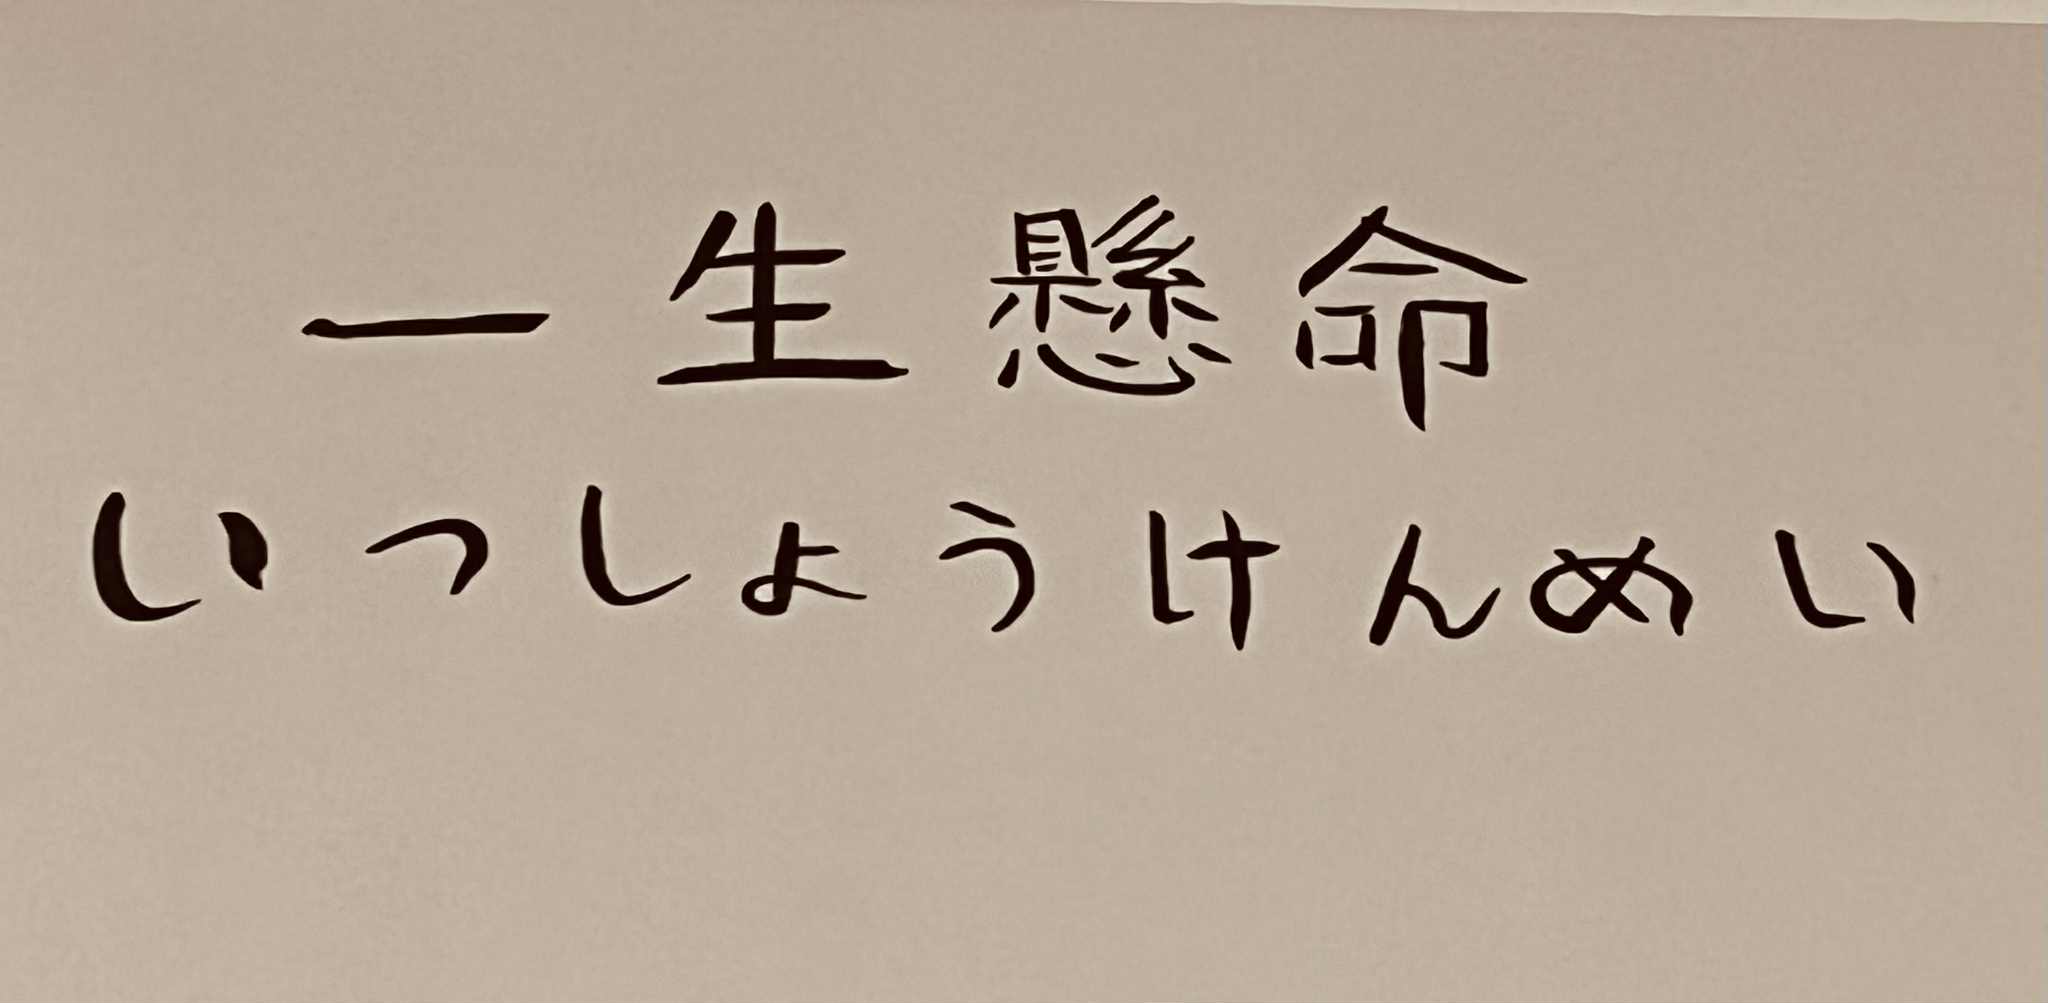 一生懸命
いっしょうけんめい